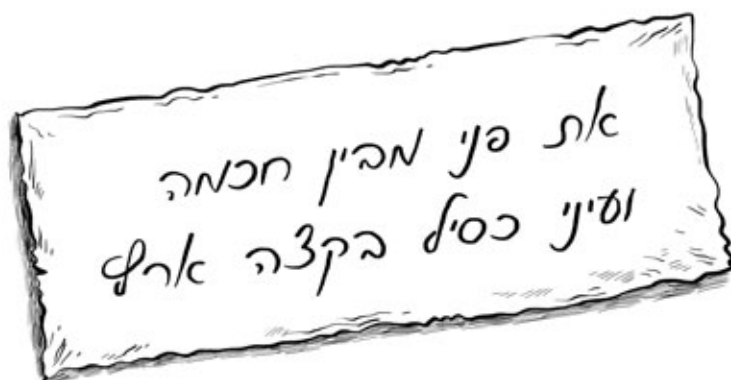 את פני מבין חכמה
ועיני כסיל בקצה ארץ